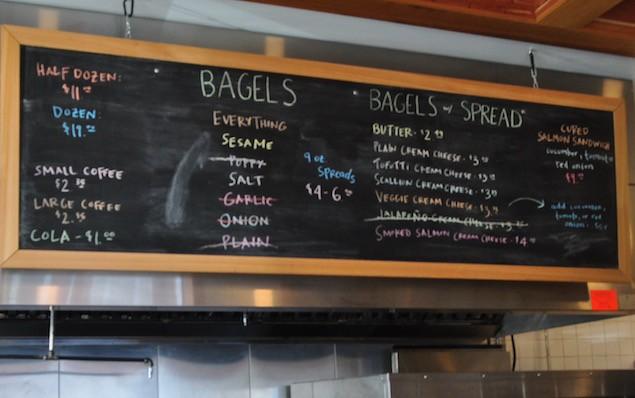 HALF DOZEN:
$11.
DOZEN:
$19.
SMALL COFFEE
$2.
LARGE COFFEE
$2.
COLA - $1.00
BAGELS
EVERYTHING
SESAME
POPPY
SALT
GARLIC
ONION
PLAIN
9 oz
SPREADS
$4-6.00
BAGELS w/ SPREAD
BUTTER - $2
PLAIN CREAM CHEESE - $3
TOFUTTI CREAM CHEESE - $3
SCALLION CREAM CHEESE - $3
VEGGIE CREAM CHEESE - $3
JALAPEÑO CREAM CHEESE - $3
SMOKED SALMON CREAM CHEESE - $4
CURED
SALMON SANDWICH
cucumber, tomato
red onions
$9.
add cucumber,
tomato, or red
onion -